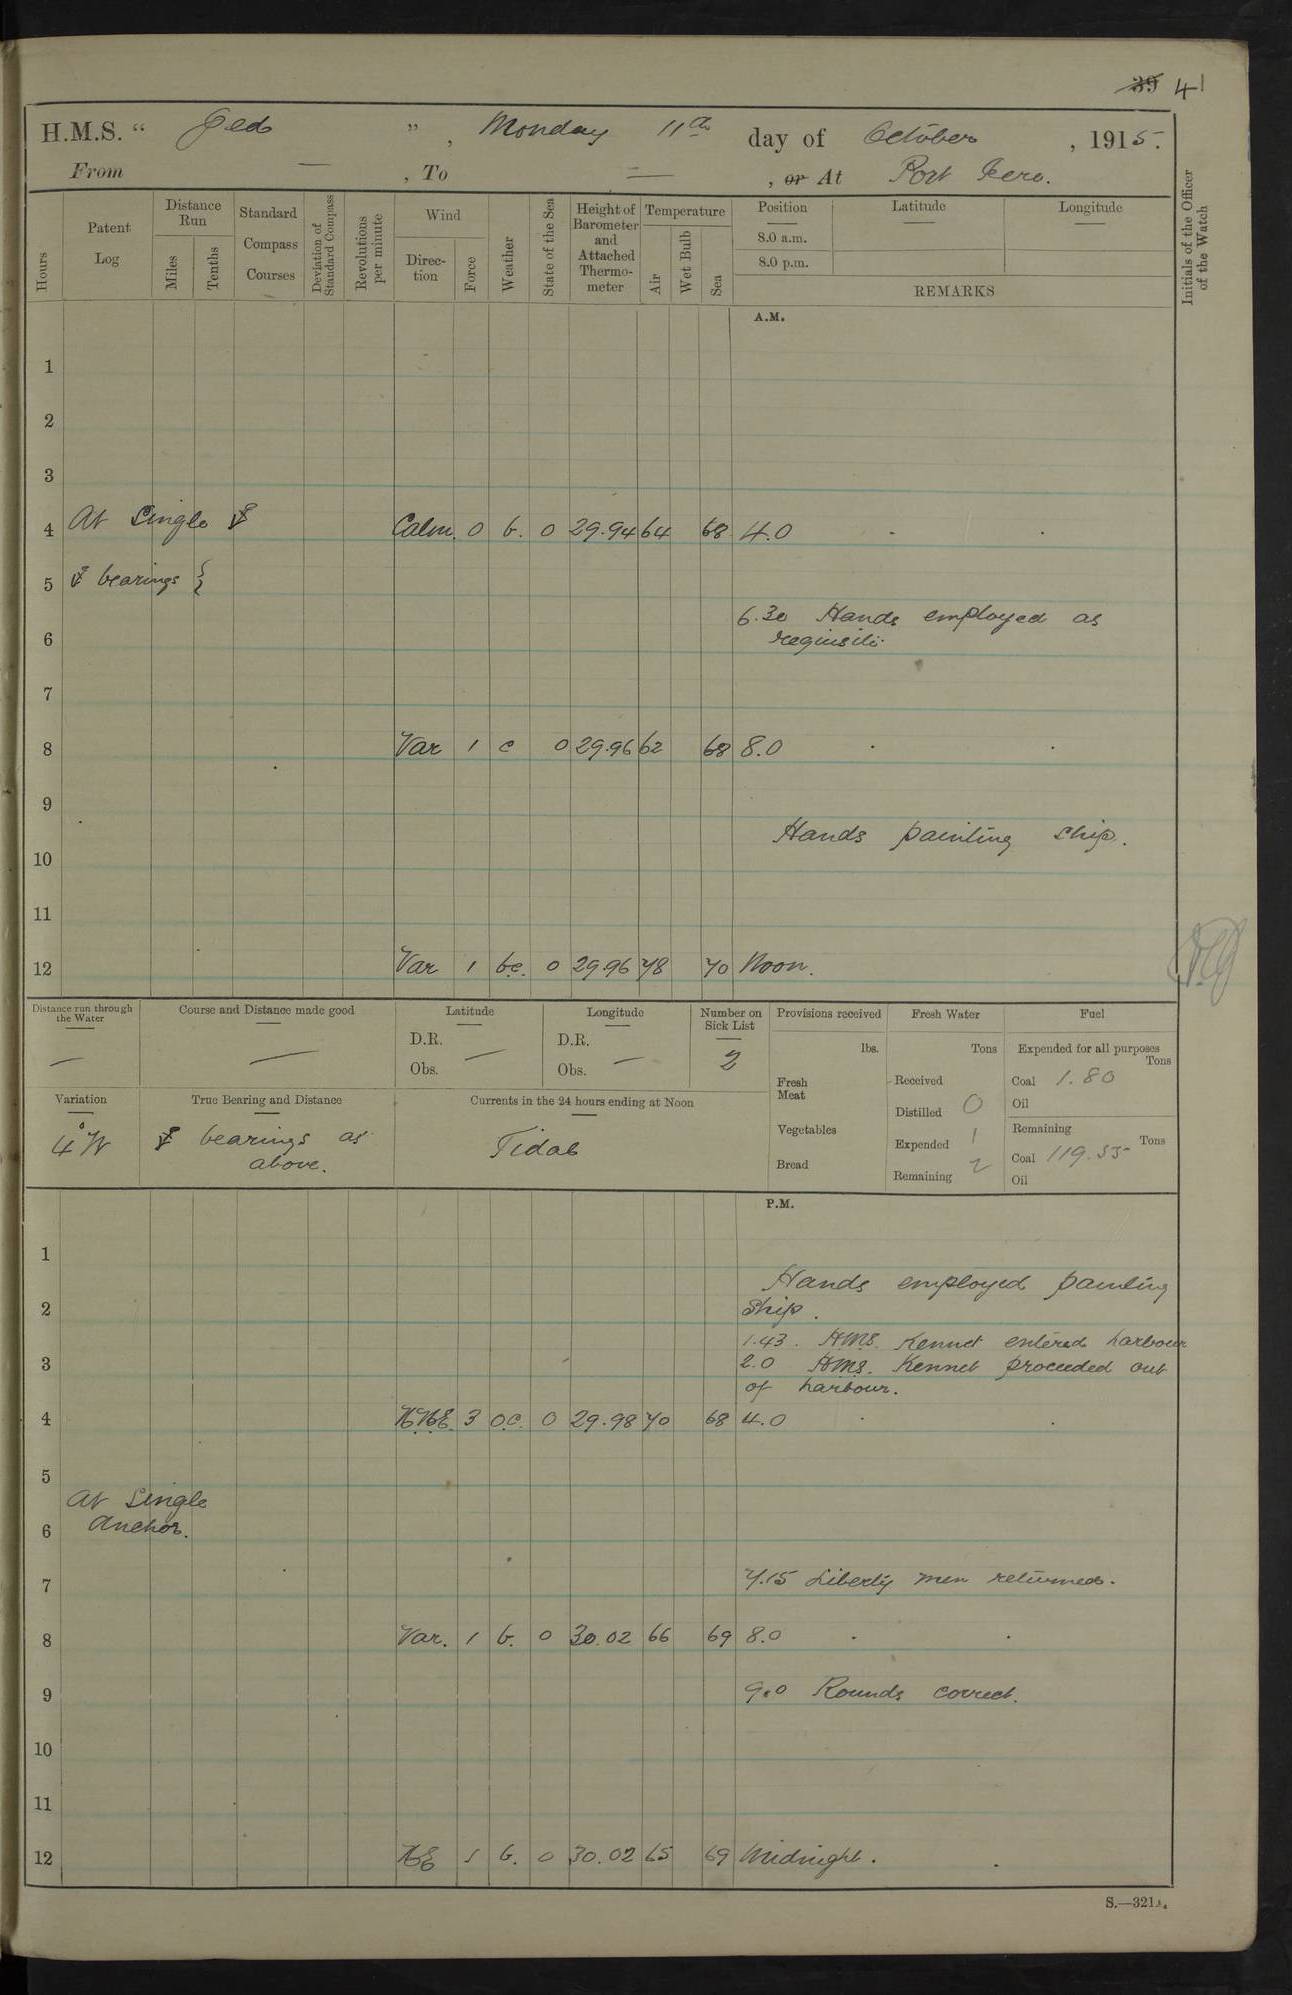 39 41
H.M.S. " Jed ", Monday 11th day of October, 1915.
From — , To — , or At Port Iero.
Hours
Patent Log
Distance Run
Miles
Tenths
Standard Compass Courses
Deviation of Standard Compass
Revolutions per minute
Wind
Direction
Force
Weather
State of the Sea
Height of Barometer and Attached Thermometer
Temperature
Air
Wet Bulb
Sea
Position
8.0 a.m.
8.0 p.m.
Latitude
Longitude
REMARKS
Initials of the Officer of the Watch
A.M.
1
2
3
4 At Single ⚓ Calm. 0 b. 0 29.94 64 68 4.0
5 ⚓ bearings {
6.30 Hands employed as
6 requisite.
7
8 Var 1 c 0 29.96 62 68 8.0
9
Hands painting ship.
10
11
12 Var 1 b.c. 0 29.96 78 70 Noon.
Distance run through the Water
—
Course and Distance made good
—
Latitude
D.R.
Obs. —
Longitude
D.R.
Obs. —
Number on Sick List
2
Provisions received
lbs.
Fresh Meat
Vegetables
Bread
Fresh Water
Tons
Received
Distilled 0
Expended 1
Remaining 2
Fuel
Expended for all purposes
Tons
Coal 1.80
Oil
Remaining
Tons
Coal 119.55
Oil
Variation
4°W
True Bearing and Distance
⚓ bearings as
above.
Currents in the 24 hours ending at Noon
Tidal
P.M.
1
Hands employed painting
2 ship.
1.43. HMS. Kennet entered harbour
3 2.0 HMS. Kennet proceeded out
of harbour.
4 N.N.E. 3 o.c. 0 29.98 70 68 4.0
5
At Single
6 Anchor.
7 7.15 Liberty men returned.
8 Var. 1 b. 0 30.02 66 69 8.0
9 9.0 Rounds correct.
10
11
12 NE 1 b. 0 30.02 65 69 Midnight.
S.—321A.